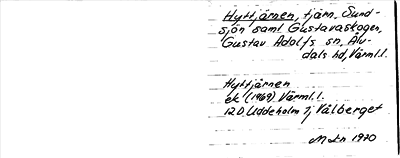 Hyttjärnen, tjärn, Sund-
sjön saml Gustavaskogen,
Gustav Adolfs sn, Älv-
dals hd, Värml.l.
Hyttjärnen
ek (1969) Värml.l.
12D Uddeholm 7j Välberget
M Ln 1970